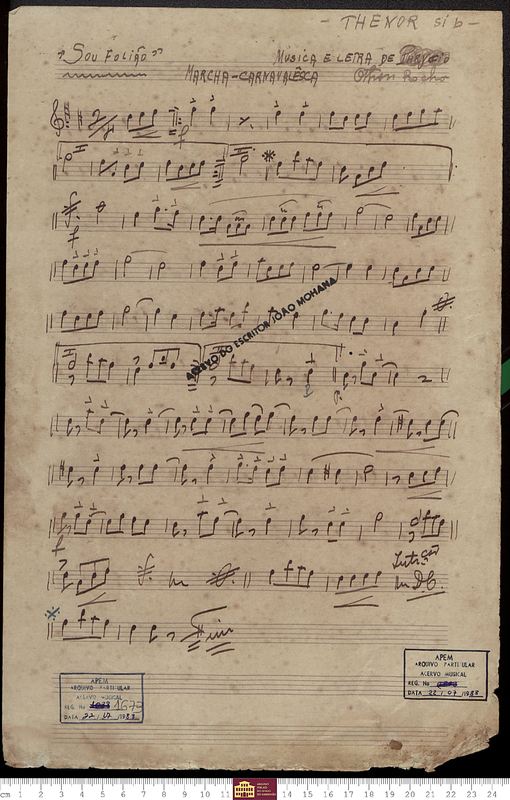 - THENOR sib -
"SOU FOLIÃO"
MUSICA E LETRA DE
MARCHA-CARNAVALÊSCA
Othon Rocha
ACERVO DO ESCRITOR JOÃO MOHANA
D.C.
Fim
APEM
ARQUIVO PARTICULAR
ACERVO MUSICAL
REG. No
DATA 22/07/1988
APEM
ARQUIVO PARTICULAR
ACERVO MUSICAL
REG. No 1673
DATA 22/07/1988
cm 1 2 3 4 5 6 7 8 9 10 11 12 13 14 15 16 17 18 19 20 21 22 23 24